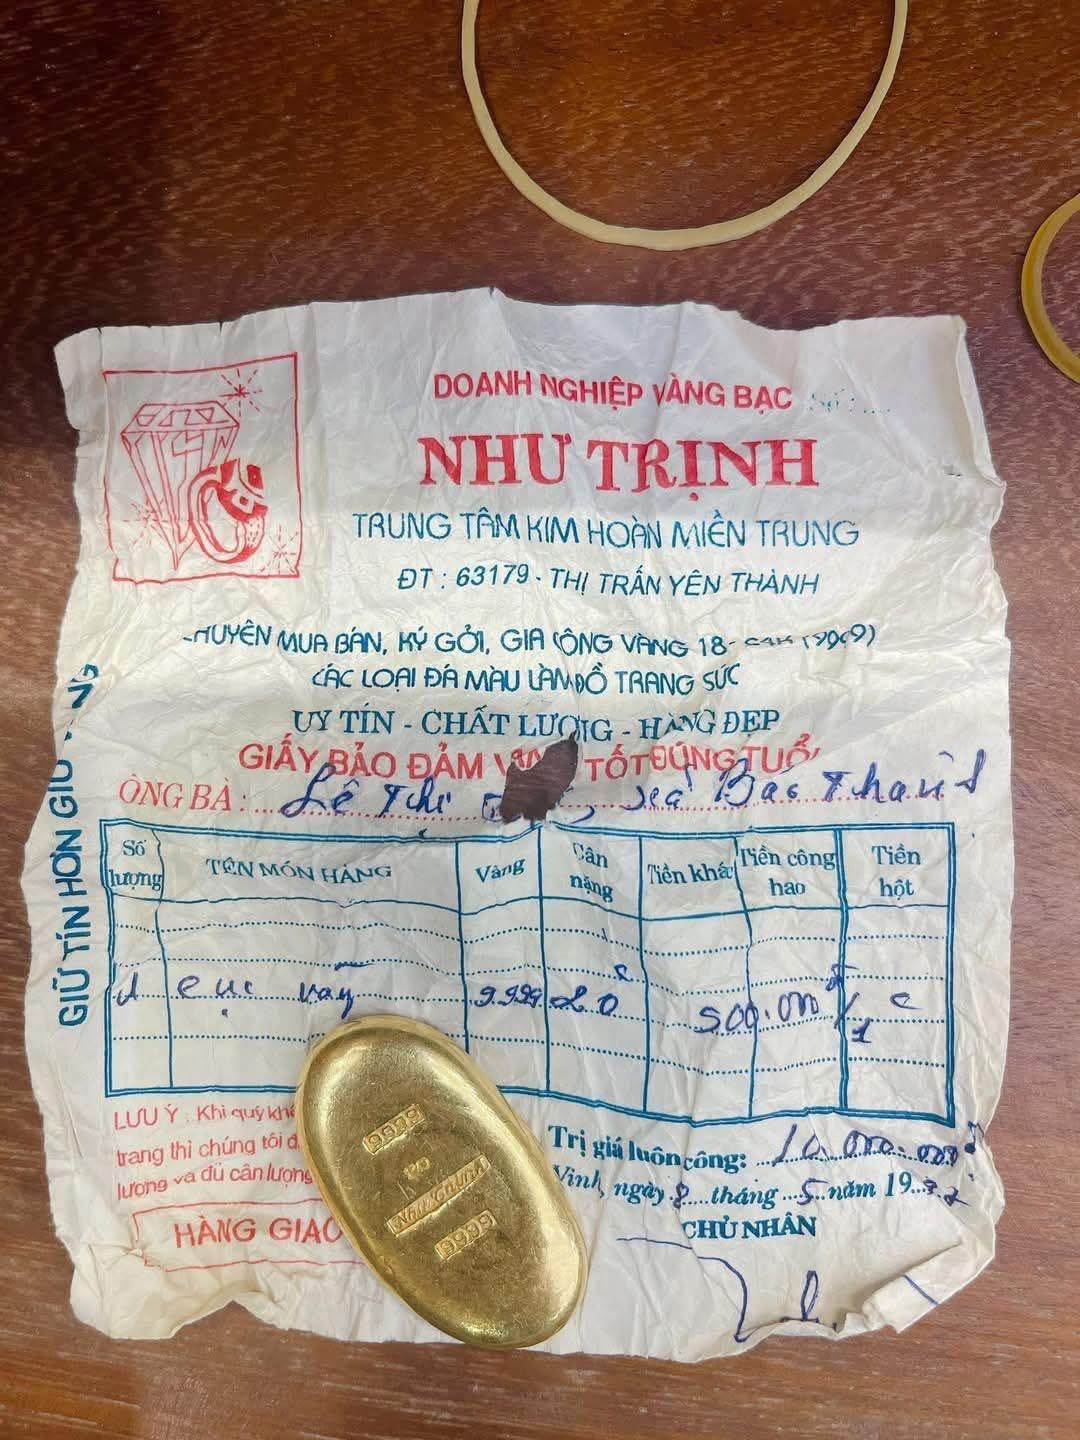 DOANH NGHIỆP VÀNG BẠC Số:....
NHƯ TRỊNH
TRUNG TÂM KIM HOÀN MIỀN TRUNG
ĐT : 63179 - THỊ TRẤN YÊN THÀNH
HUYÊN MUA BÁN, KÝ GỞI, GIA CÔNG VÀNG 18-
CÁC LOẠI ĐÁ MÀU LÀM ĐỒ TRANG SỨC
UY TÍN - CHẤT LƯỢNG - HÀNG ĐẸP
GIẤY BẢO ĐẢM TỐT ĐÚNG TUỔI
ÔNG BÀ : Lê Thị Bác Thanh
GIỮ TÍN HƠN GIỮ
Số lượng TÊN MÓN HÀNG Vàng Cân nặng Tiền khá Tiền công hao Tiền hột
1 cục 9.999 20 500.000đ/1c
LƯU Ý : Khi quý khá
trang thì chúng tôi đ
lượng và đủ cân lượng
HÀNG GIAO
9999
9999
Trị giá luôn công: 10.000.000đ
Vinh, ngày 8 tháng 5 năm 19
CHỦ NHÂN